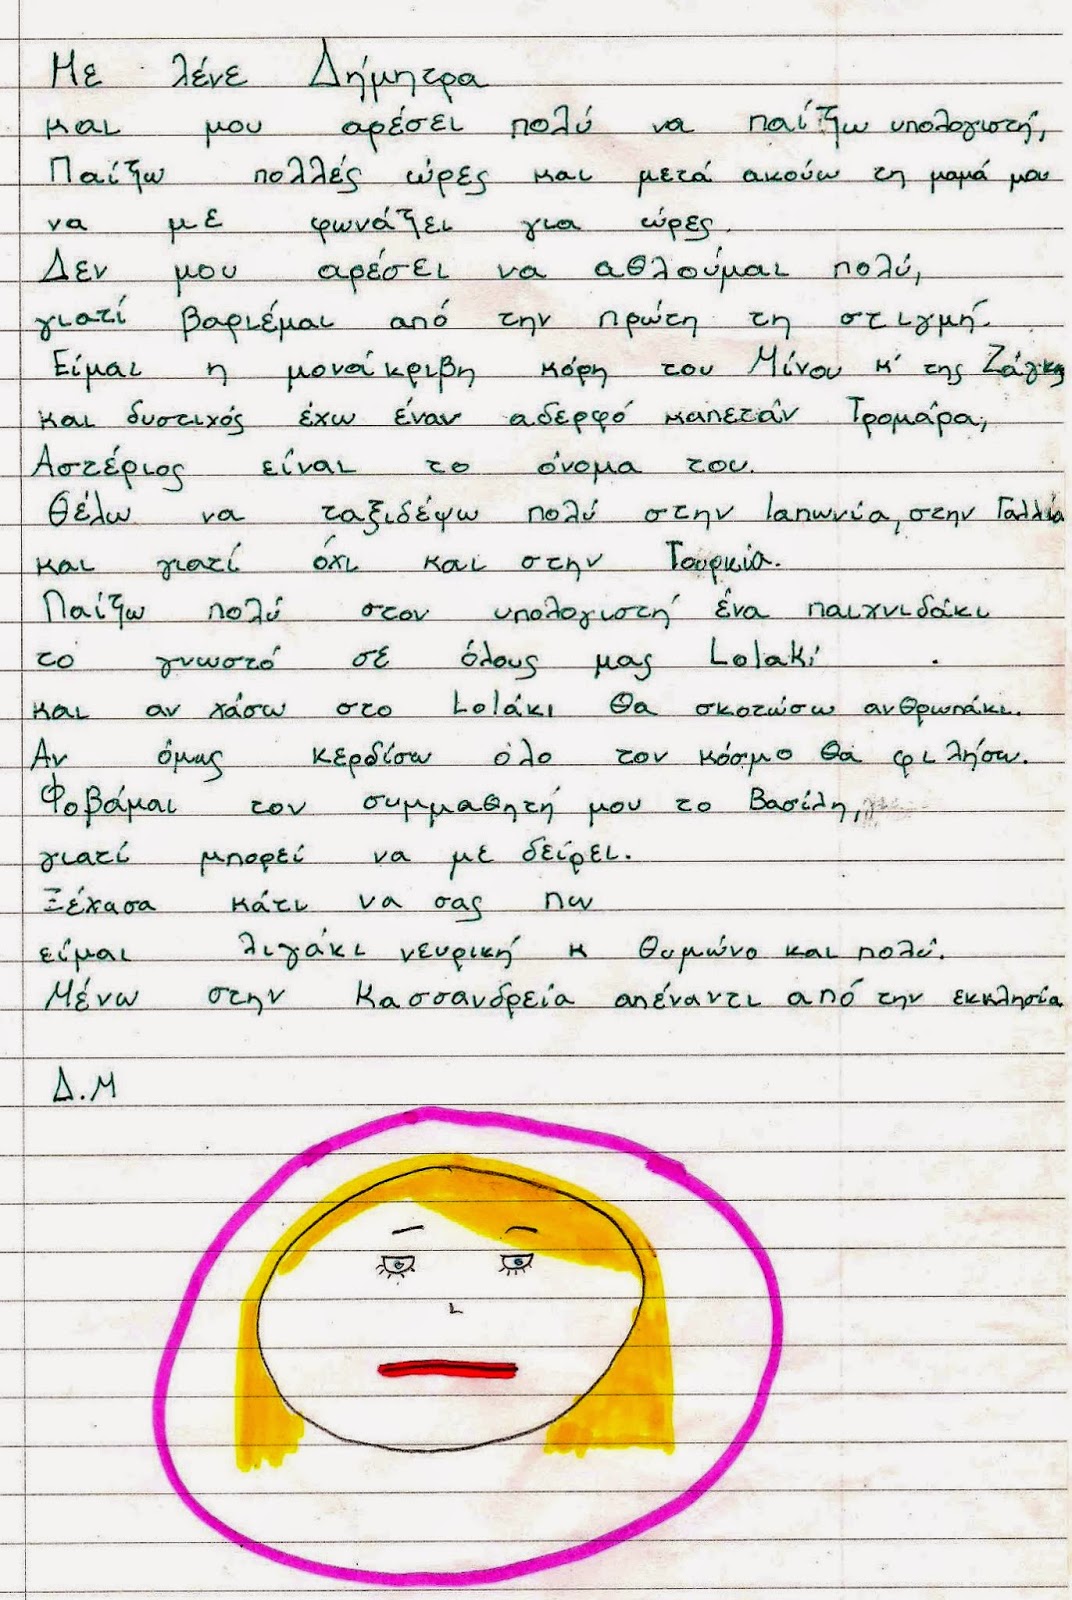 Με λένε Δήμητρα
και μου αρέσει πολύ να παίζω υπολογιστή,
Παίζω πολλές ώρες και μετά ακούω τη μαμά μου
να με φωνάζει για ώρες.
Δεν μου αρέσει να αθλούμαι πολύ,
γιατί βαριέμαι από την πρώτη τη στιγμή.
Είμαι η μονάκριβη κόρη του Μίνου κ' της Ζάγκη
και δυστιχός έχω έναν αδερφό καπετάν Τρομάρα,
Αστέριος είναι το όνομα του.
Θέλω να ταξιδέψω πολύ στην Ιαπωνία, στην Γαλλία
και γιατί όχι και στην Τουρκία.
Παίζω πολύ στον υπολογιστή ένα παιχνιδάκι
το γνωστό σε όλους μας Lolaki .
και αν χάσω στο Loláκι θα σκοτώσω ανθρωπάκι.
Αν όμως κερδίσω όλο τον κόσμο θα φιλήσω.
Φοβάμαι τον συμμαθητή μου το Βασίλη,
γιατί μπορεί να με δείρει.
Ξέχασα κάτι να σας πω
είμαι λιγάκι νευρική κ θυμώνο και πολύ.
Μένω στην Κασσανδρεία απέναντι από την εκκλησία
Δ.Μ